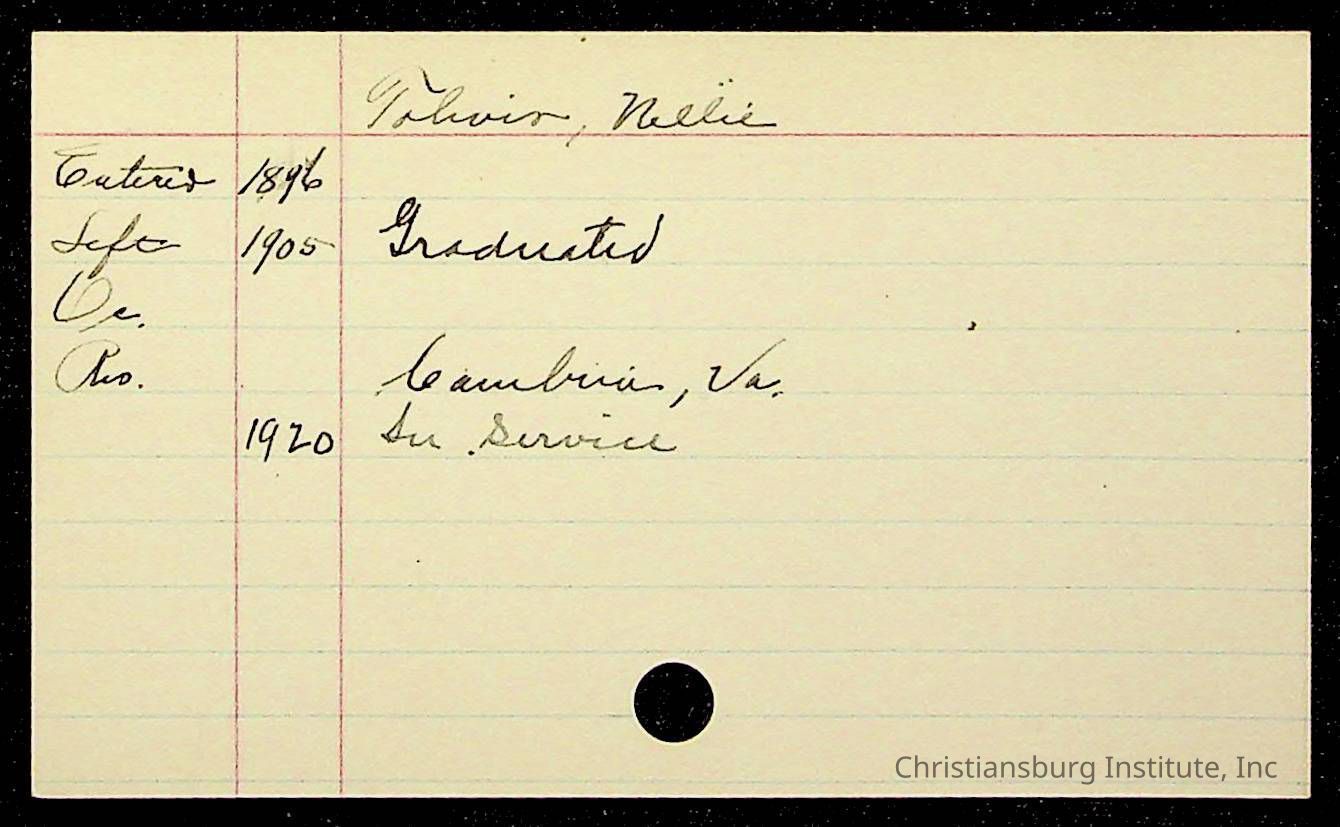 Toliver, Nellie
Entered 1896
Left 1905 Graduated
Oc.
Res. Cambria, Va.
1920 In Service
Christiansburg Institute, Inc